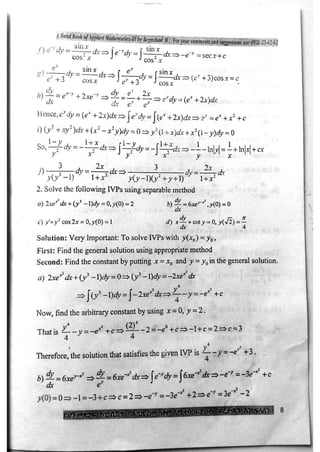 A Hand Book of Applied Mathematics-III by Begashaw M. For your comments and suggestions use 0938-83-62-62
f) e^{-y} dy = \frac{sin x}{cos² x} dx ⇒ ∫e^{-y} dy = ∫\frac{sin x}{cos² x} dx ⇒ -e^{-y} = sec x + c
g) \frac{e^y}{e^y + 3} dy = \frac{sin x}{cos x} dx ⇒ ∫\frac{e^y}{e^y + 3} dy = ∫\frac{sin x}{cos x} dx ⇒ (e^y + 3) cos x = c
h) \frac{dy}{dx} = e^{x-y} + 2xe^{-y} ⇒ \frac{dy}{dx} = \frac{e^x}{e^y} + \frac{2x}{e^y} ⇒ e^y dy = (e^x + 2x)dx
Hence, e^y dy = (e^x + 2x)dx ⇒ ∫e^y dy = ∫(e^x + 2x)dx ⇒ e^y = e^x + x² + c
i) (y² + xy²)dx + (x² - x²y)dy = 0 ⇒ y²(1+x)dx + x²(1-y)dy = 0
So, \frac{1-y}{y²} dy = -\frac{1+x}{x²} dx ⇒ ∫\frac{1-y}{y²} dy = -∫\frac{1+x}{x²} dx ⇒ -\frac{1}{y} - ln|y| = \frac{1}{x} - ln|x| + c
j) \frac{3}{y(y³-1)} dy = \frac{2x}{1+x²} dx ⇒ \frac{3}{y(y-1)(y²+y+1)} dy = \frac{2x}{1+x²} dx
2. Solve the following IVPs using separable method
a) 2xe^{x²} dx + (y³ -1)dy = 0, y(0) = 2 b) \frac{dy}{dx} = 6xe^{y-x²}, y(0) = 0
c) y'+y² cos 2x = 0, y(0) = 1 d) x\frac{dy}{dx} + cot y = 0, y(√2) = \frac{π}{4}
Solution: Very Important: To solve IVPs with y(x₀) = y₀,
First: Find the general solution using appropriate method
Second: Find the constant by putting x = x₀ and y = y₀ in the general solution.
a) 2xe^{x²} dx + (y³ -1)dy = 0 ⇒ (y³ -1)dy = -2xe^{x²} dx
⇒ ∫(y³ -1)dy = ∫-2xe^{x²} dx ⇒ \frac{y⁴}{4} - y = -e^{x²} + c
Now, find the arbitrary constant by using x = 0, y = 2.
That is \frac{y⁴}{4} - y = -e^{x²} + c ⇒ \frac{(2)⁴}{4} - 2 = -e⁰ + c ⇒ -1 + c = 2 ⇒ c = 3
Therefore, the solution that satisfies the given IVP is \frac{y⁴}{4} - y = -e^{x²} + 3.
b) \frac{dy}{dx} = 6xe^{y-x²} ⇒ \frac{dy}{e^y} = 6xe^{-x²} dx ⇒ ∫e^{-y} dy = ∫6xe^{-x²} dx ⇒ -e^{-y} = -3e^{-x²} + c
y(0) = 0 ⇒ -1 = -3 + c ⇒ c = 2 ⇒ -e^{-y} = -3e^{-x²} + 2 ⇒ e^{-y} = 3e^{-x²} - 2
8